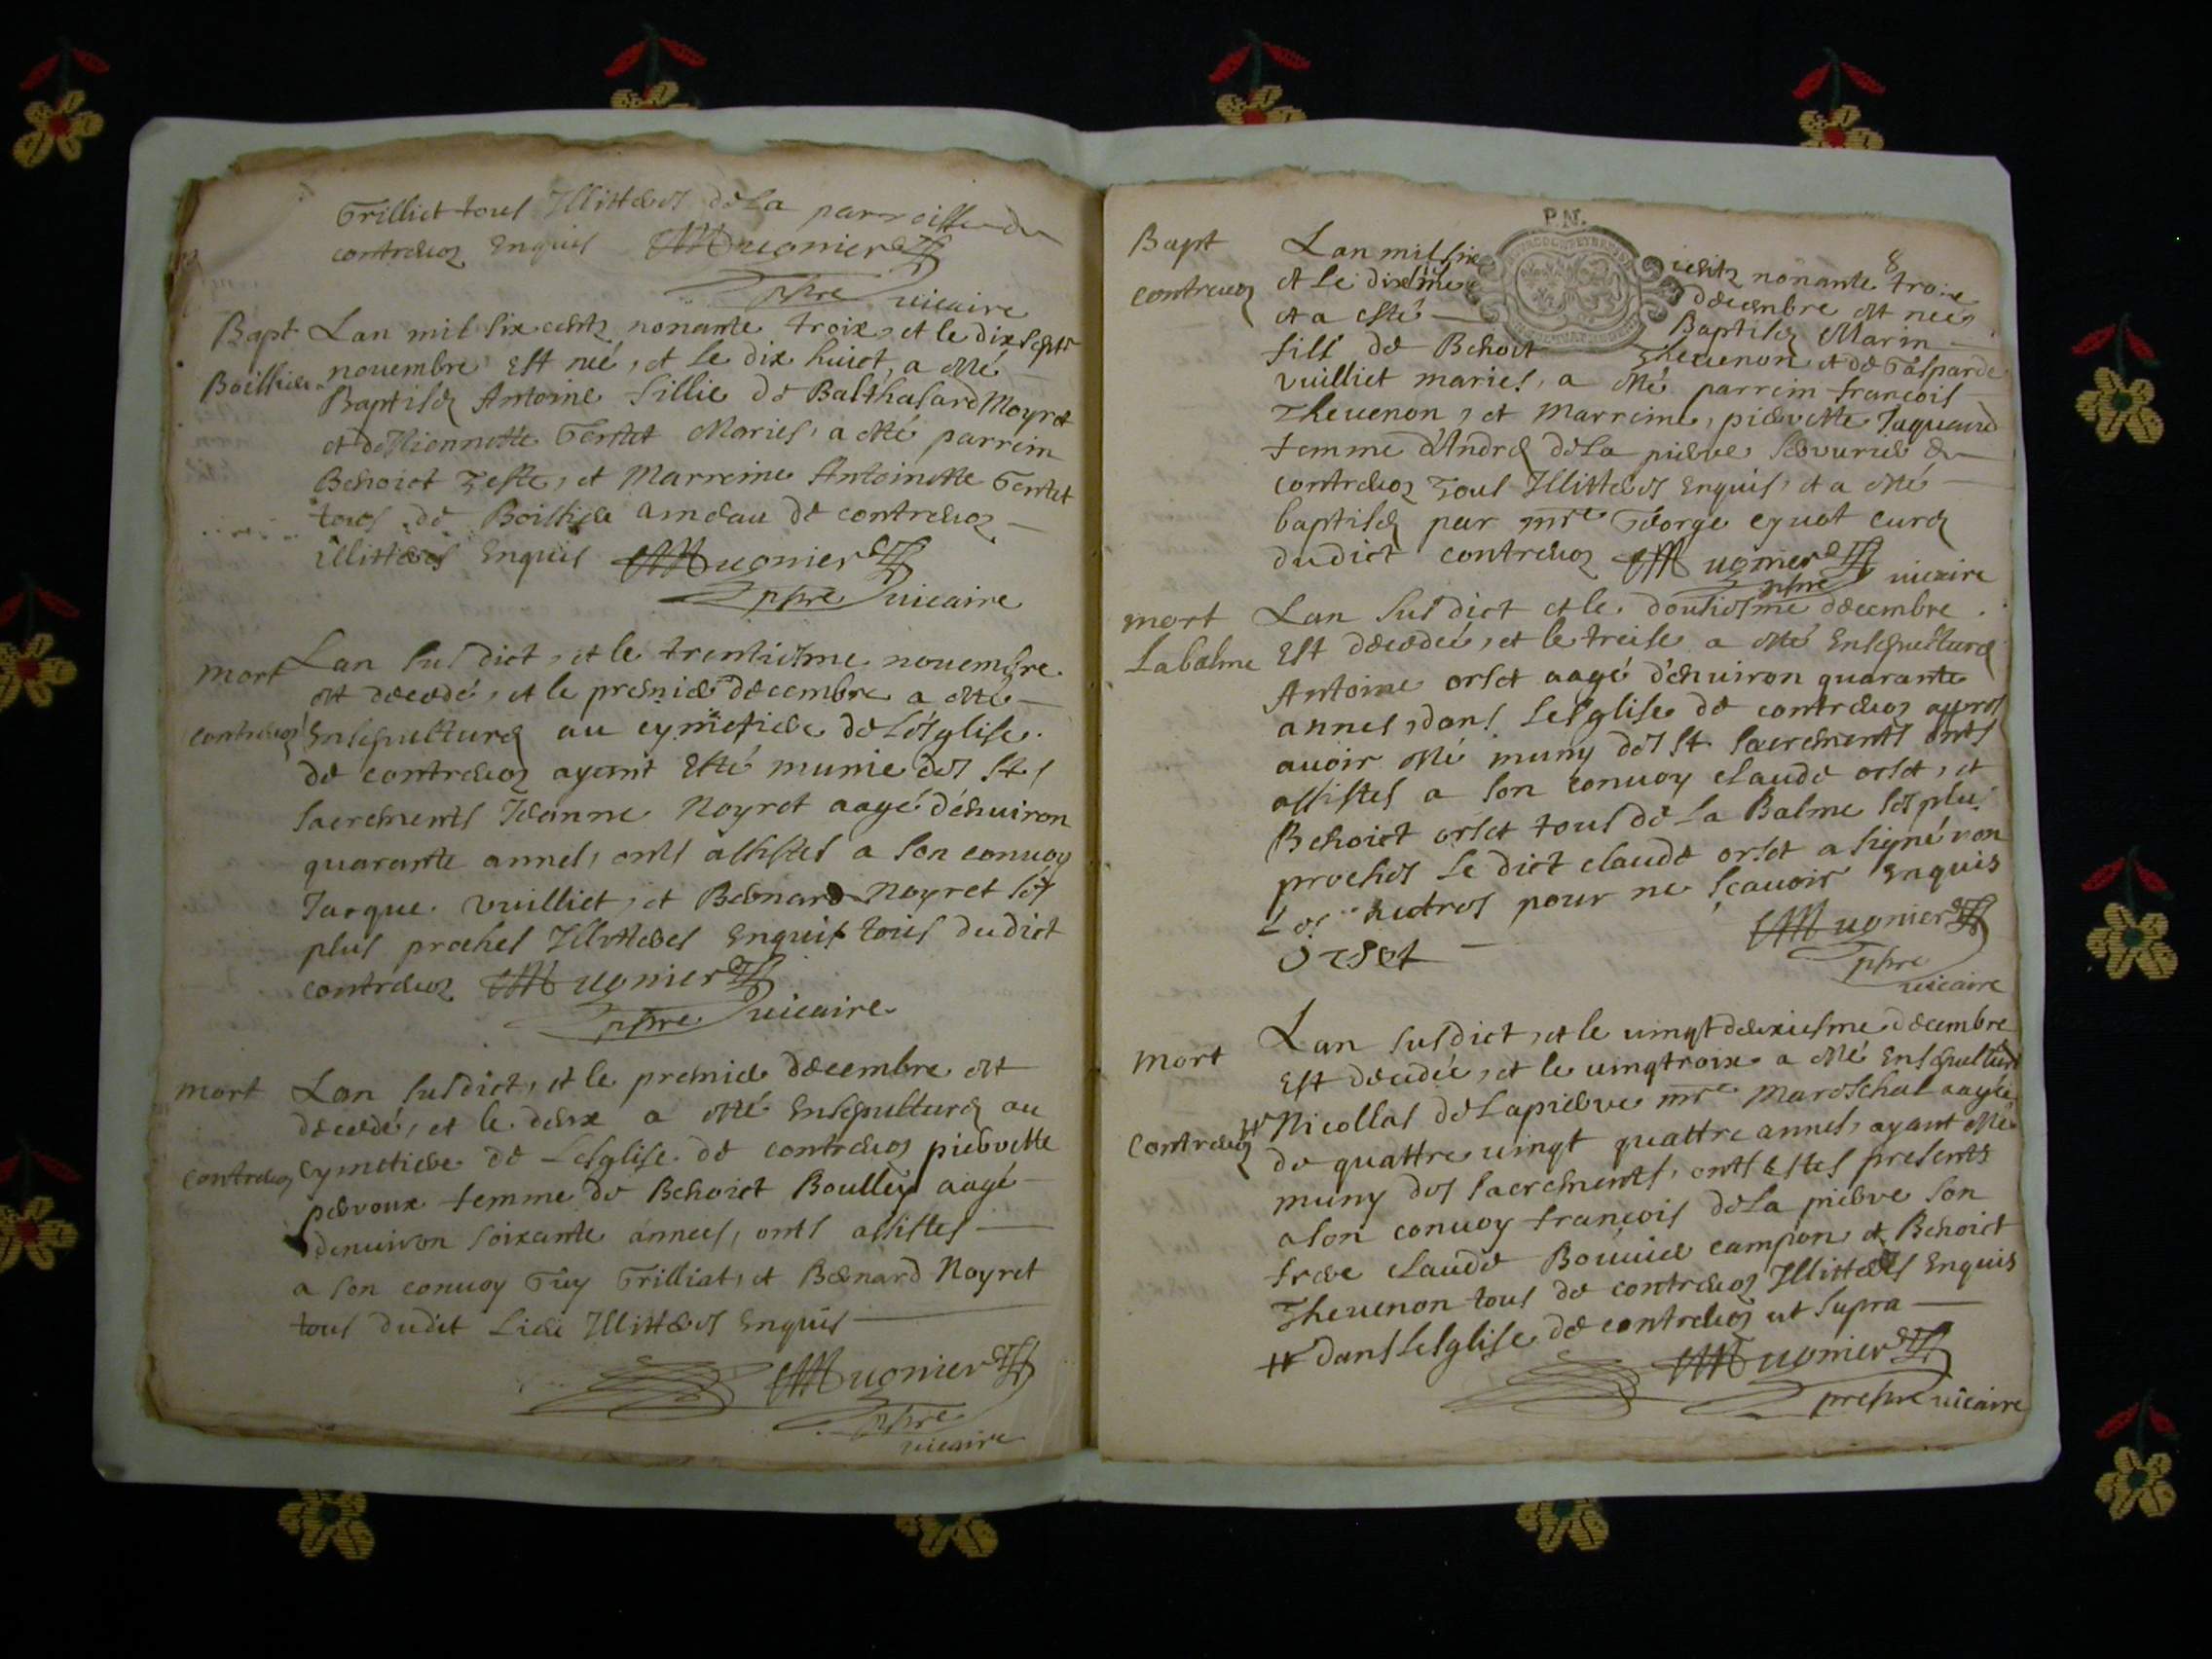 Trilliet tous Illitteres de La parroisse de
contreuoz Enquis Mugnier
pbre vicaire
Bapt
Lan mil six cents nonante troix, et le dix sept
nouembre Est née, et le dix huict, a esté
Baptisée Antoine fillie de Balthasard Moyret
et de Mariés, a esté parrein
Benoict Teste, et Marreine Antoinette
tous de ameau de contreuoz
illitteres Enquis Mugnier
pbre vicaire
mort
contreuoz
Lan susdict, et le trentiesme nouembre
est decedé, et le premier decembre a esté
Ensepulturé au cymetiere de Lésglise
de contreuoz ayant Esté munie des Sts
sacrements Jeanne Noyret aagé dénuiron
quarante annes, onts assistes a son conuoy
Jacque Vuilliet, et Bernard Noyret ses
plus proches Illitteres Enquis tous dudict
contreuoz Mugnier
pbre vicaire
mort
contreuoz
Lan susdict, et le premier decembre est
decedé, et le deux a esté Ensepulturé au
Cymetiere de Lesglise de contreuoz pierrette
femme de Benoict aagé
denuiron soixante annees, onts assistes
a son conuoy Guy Trilliat, et Bernard Noyret
tous dudit Lieu Illitteres Enquis
Mugnier
pbre
vicaire
P.N.
8
Bapt
contreuoz
Lan mil six cents nonante troix
et le dixiesme decembre est née
et a esté Baptisé Marin
fils de Benoit Theuenon et de Gasparde
Vuilliet maries, a esté parrein françois
Theuenon, et Marreine, pierrette Juquand
femme d'André de la pierre de
contreuoz Tous Illitteres Enquis, et a esté
baptisé par mre George curé
dudict contreuoz Mugnier
pbre vicaire
mort
Labalme
Lan susdict et le dousiesme decembre
Est decedée, et le treise a esté Ensepulturé
Antoine orset aagé dénuiron quarante
annes, dans Lesglise de contreuoz apres
auoir esté muny des St sacrements onts
assistes a son conuoy claude orset, et
Benoict orset tous de La Balme ses plus
proches Le dict claude orset a signé non
Les autres pour ne sçauoir Enquis
Orset
Mugnier
pbre
vicaire
mort
Contreuoz
Lan susdict, et le uingt deuxiesme decembre
Est decedée, et le uingtroix a esté Ensepulturé
# Nicollas de Lapierre mre Mareschal aagé
de quattre uingt quattre annes, ayant esté
muny des sacrements, onts estes presents
a son conuoy françois de La pierre son
frere claude Bouuier campion et Benoict
Theuenon tous de contreuoz Illitteres Enquis
# dans Lesglise de contreuoz ut supra
Mugnier
presbre vicaire